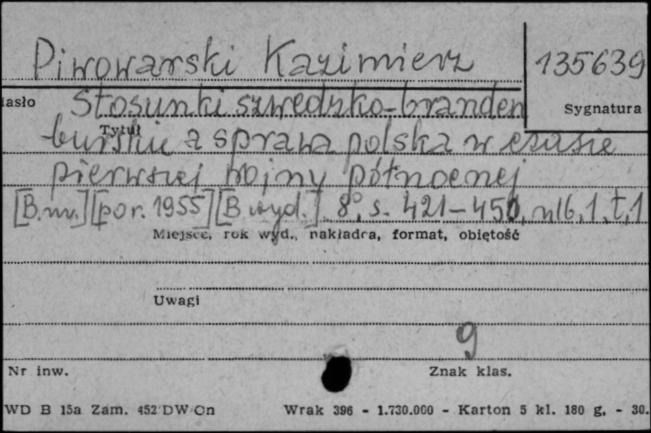 Piwowarski Kazimierz
135639
asło Stosunki szwedzko-branden
Sygnatura
Tytuł
burskie a sprawa polska w czasie
pierwszej wojny północnej
[B.m.] [por. 1955] [B wyd.] 8°, s. 421-450, nlb, 1, t, 1
Miejsce, rok wyd., nakładca, format, objętość
Uwagi
9
Nr inw.
Znak klas.
WD B 15a Zam. 452 DW Cn Wrak 396 - 1.730.000 - Karton 5 kl. 180 g, - 30.